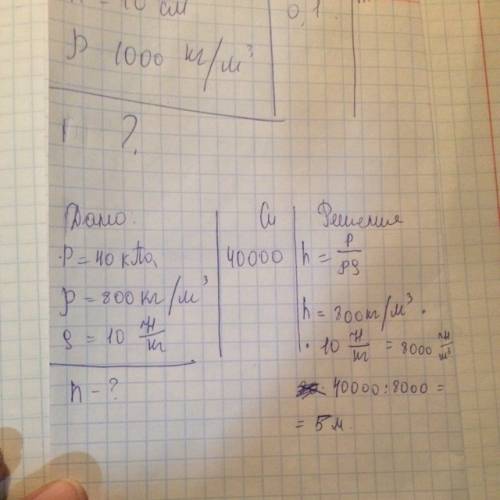 = 10 см
0,1
ρ 1000 кг/м³
?
Дано. Си Решения
P = 40 кПа, 40000 h = P/ρg
ρ = 800 кг/м³
g = 10 Н/кг
h = 800 кг/м³ ·
· 10 Н/кг = 8000 Н/м³
h - ?
40000 : 8000 =
= 5 м.